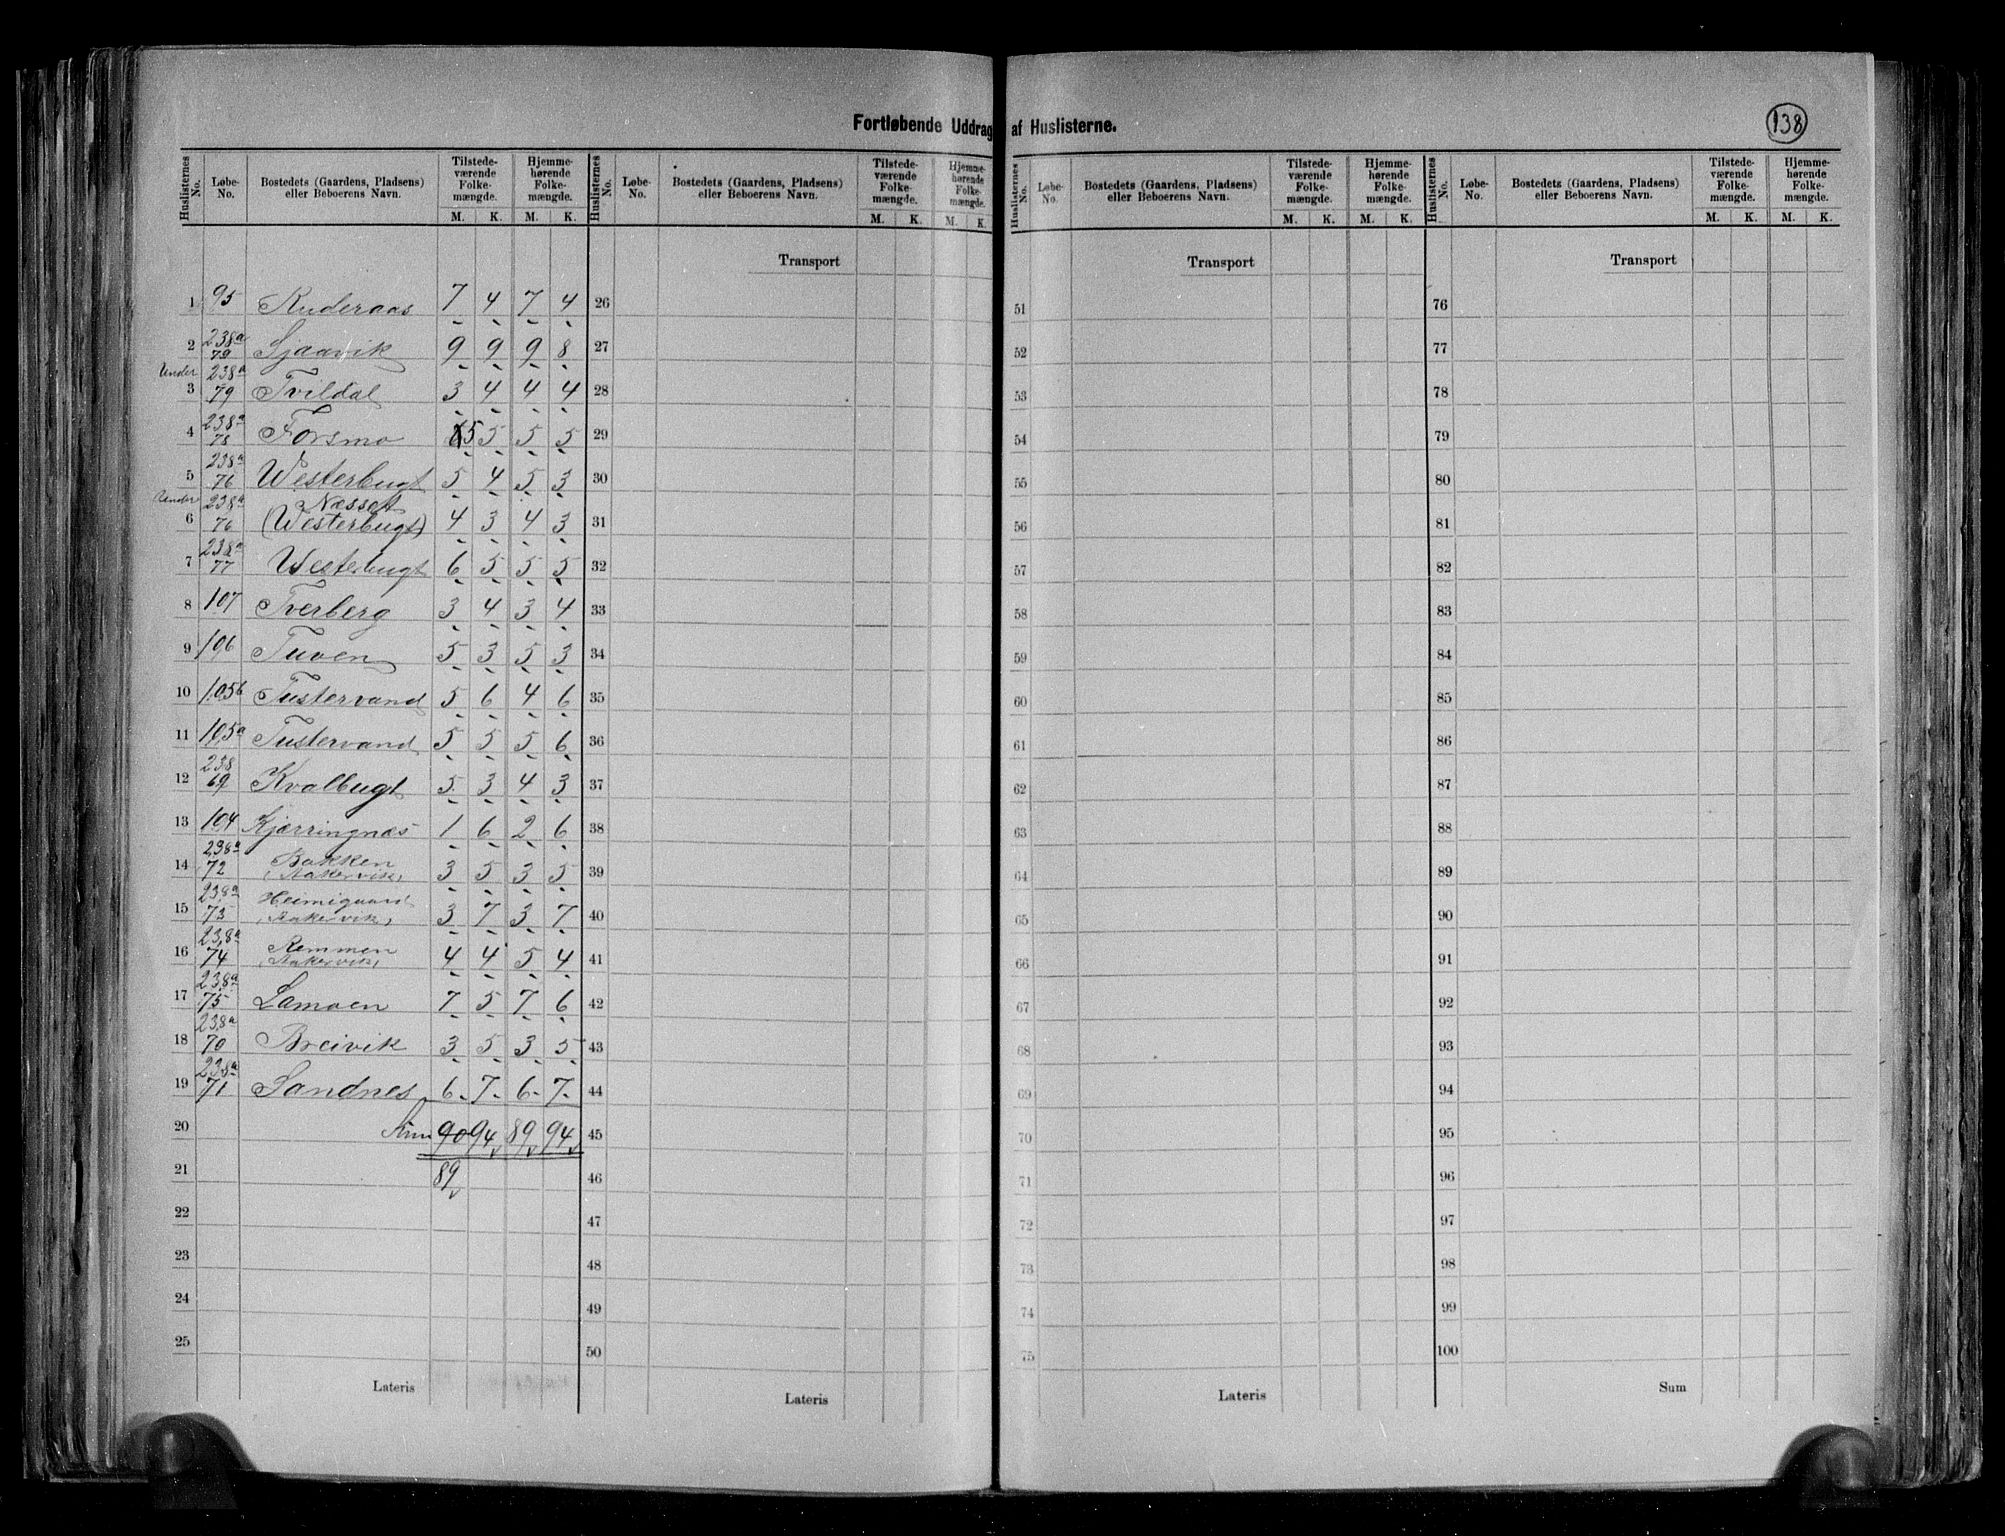 Fortløbende Uddrag af Huslisterne.
138
Huslisternes No. Løbe-No. Bostedets (Gaardens, Pladsens) eller Beboerens Navn. Tilstedeværende Folkemængde. M. K. Hjemmehørende Folkemængde. M. K.
Huslisternes No. Løbe-No. Bostedets (Gaardens, Pladsens) eller Beboerens Navn. Tilstedeværende Folkemængde. M. K. Hjemmehørende Folkemængde. M. K.
Huslisternes No. Løbe-No. Bostedets (Gaardens, Pladsens) eller Beboerens Navn. Tilstedeværende Folkemængde. M. K. Hjemmehørende Folkemængde. M. K.
Huslisternes No. Løbe-No. Bostedets (Gaardens, Pladsens) eller Beboerens Navn. Tilstedeværende Folkemængde. M. K. Hjemmehørende Folkemængde. M. K.
1 95 Ruderaas 7 4 7 4
2 238a 79 Sjaavik 9 9 9 8
Under 3 238a 79 Tvildal 3 4 4 4
4 238a 78 Forsmo 5 5 5 5
5 238a 76 Westerbugt 5 4 5 3
Under 6 238a 76 Næsset (Westerbugt) 4 3 4 3
7 238a 77 Westerbugt 6 5 5 5
8 107 Tverberg 3 4 3 4
9 106 Tuven 5 3 5 3
10 105b Tustervand 5 6 4 6
11 105a Tustervand 5 5 5 6
12 238 69 Kvalbugt 5 3 4 3
13 104 Kjærringnæs 1 6 2 6
14 238a 72 Bakken (Stakervik) 3 5 3 5
15 238a 73 Heimigaard (Stakervik) 3 7 3 7
16 238a 74 Remmen (Stakervik) 4 4 5 4
17 238a 75 Lamoen 7 5 7 6
18 238a 70 Breivik 3 5 3 5
19 238a 71 Sandnes 6 7 6 7
20 Sum 90 94 89 94
21 89
22
23
24
25
Lateris
Transport
26
27
28
29
30
31
32
33
34
35
36
37
38
39
40
41
42
43
44
45
46
47
48
49
50
Lateris
Transport
51
52
53
54
55
56
57
58
59
60
61
62
63
64
65
66
67
68
69
70
71
72
73
74
75
Lateris
Transport
76
77
78
79
80
81
82
83
84
85
86
87
88
89
90
91
92
93
94
95
96
97
98
99
100
Sum